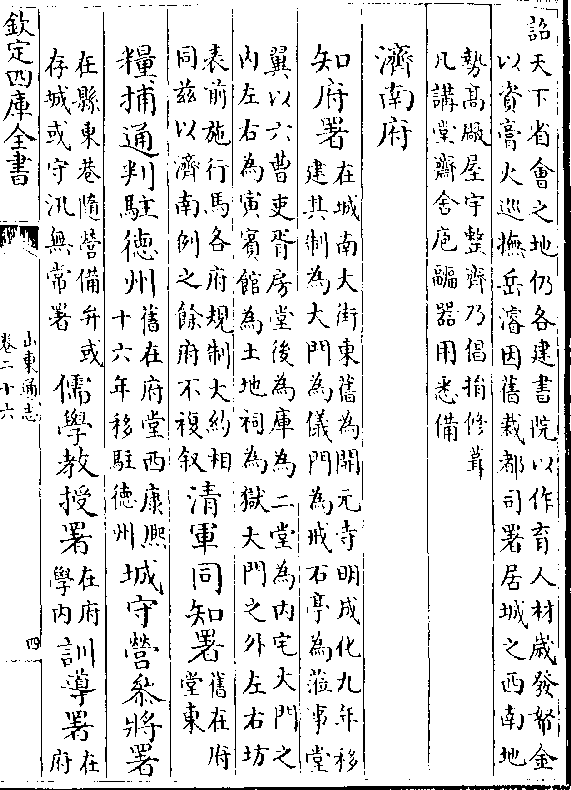 詔天下省會之地仍各建書院以作育人材歲發帑金
以資膏火巡撫岳濬因舊裁都司署居城之西南地
勢髙厰屋宇整齊乃倡捐修葺
凡講堂齋舍庖湢器用悉備
濟南府
知府署
在城南大街東舊為開元寺明成化九年移
建其制為大門為儀門為戒石亭為蒞事堂
翼以六曹吏胥房堂後為庫為二堂為内宅大門之
内左右為寅賓館為土地祠為獄大門之外左右坊
表前施行馬各府規制大約相
同兹以濟南例之餘府不複叙
清軍同知署
舊在府
堂東
糧捕通判駐德州
舊在府堂西康熈
十六年移駐德州
城守營叅將署
在縣東巷隨營備弁或
存城或守汛無常署
儒學教授署
在府
學内
訓導署
在
府
欽定四庫全書
山東通志
卷二十六
四